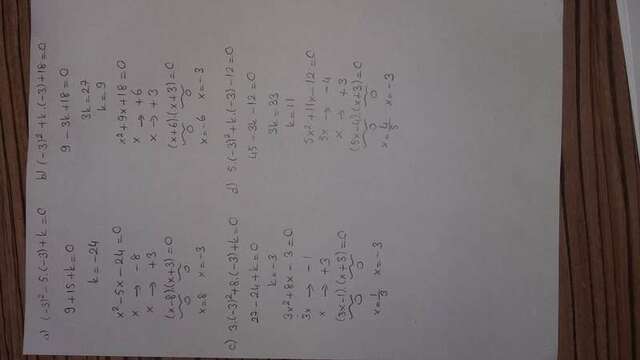 a) (-3)² - 5.(-3) + k = 0
9 + 15 + k = 0
k = -24
x² - 5x - 24 = 0
x → -8
x → +3
(x-8).(x+3) = 0
0 0
x = 8 x = -3
b) (-3)² + k.(-3) + 18 = 0
9 - 3k + 18 = 0
3k = 27
k = 9
x² + 9x + 18 = 0
x → +6
x → +3
(x+6).(x+3) = 0
0 0
x = -6 x = -3
c) 3.(-3)² + 8.(-3) + k = 0
27 - 24 + k = 0
k = -3
3x² + 8x - 3 = 0
3x → -1
x → +3
(3x-1).(x+3) = 0
0 0
x = 1/3 x = -3
d) 5.(-3)² + k.(-3) - 12 = 0
45 - 3k - 12 = 0
3k = 33
k = 11
5x² + 11x - 12 = 0
5x → -4
x → +3
(5x-4).(x+3) = 0
0 0
x = 4/5 x = -3